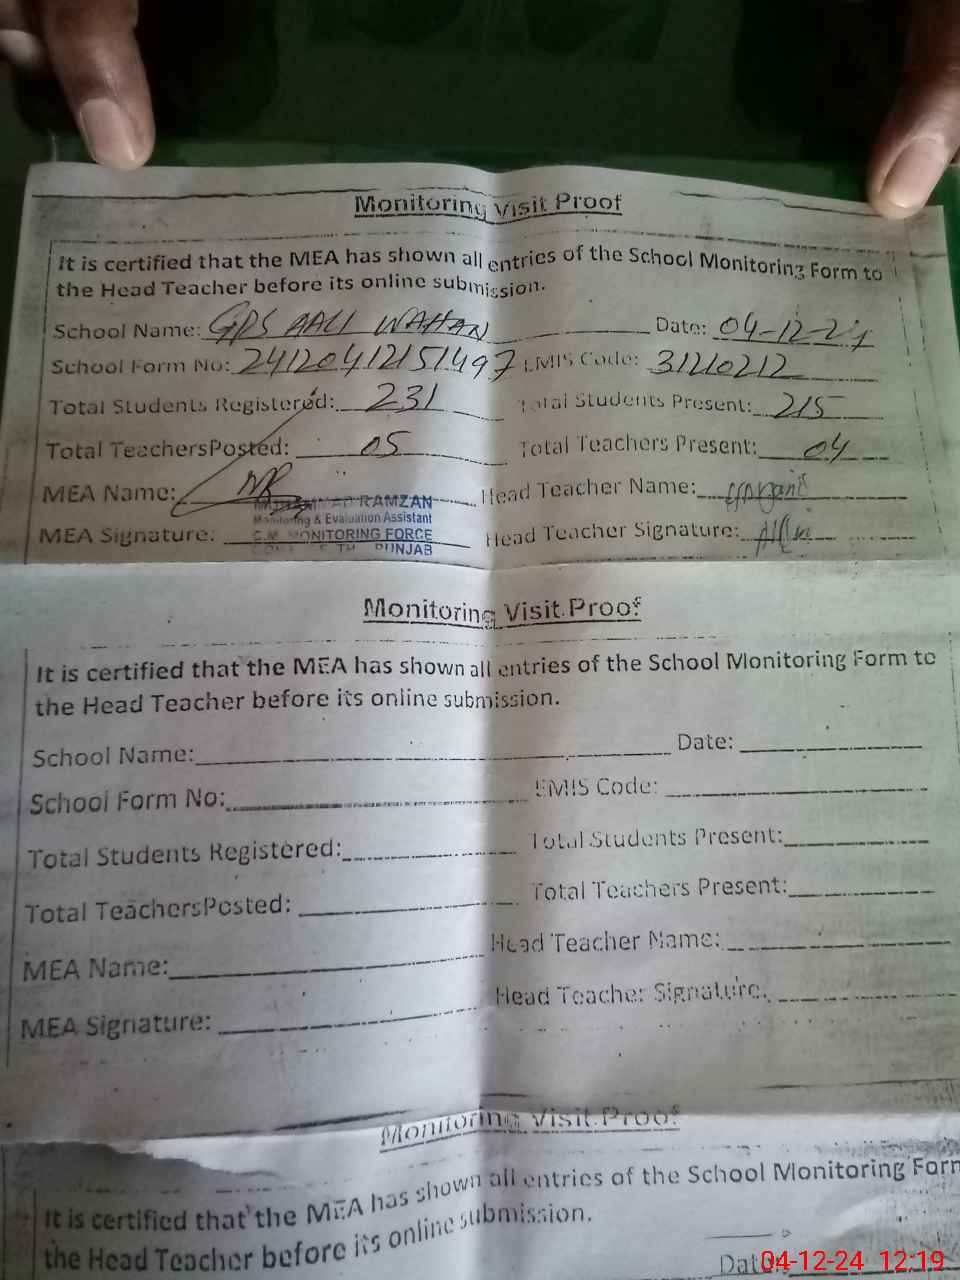 Monitoring Visit Proof
It is certified that the MEA has shown all entries of the School Monitoring Form to
the Head Teacher before its online submission.
School Name: GPS AALI WAHAN Date: 04-12-24
School Form No: 24120412151497 EMIS Code: 31210212
Total Students Registered: 231 Total Students Present: 215
Total TeachersPosted: 05 Total Teachers Present: 04
MEA Name: Head Teacher Name:
MUHAMMAD RAMZAN
Monitoring & Evaluation Assistant
MEA Signature: C.M. MONITORING FORCE Head Teacher Signature:
PUNJAB
Monitoring Visit Proof
It is certified that the MEA has shown all entries of the School Monitoring Form to
the Head Teacher before its online submission.
School Name: Date:
School Form No: EMIS Code:
Total Students Registered: Total Students Present:
Total TeachersPosted: Total Teachers Present:
MEA Name: Head Teacher Name:
MEA Signature: Head Teacher Signature:
Monitoring Visit Proof
It is certified that the MEA has shown all entries of the School Monitoring Form
the Head Teacher before its online submission.
Date:
04-12-24 12:19